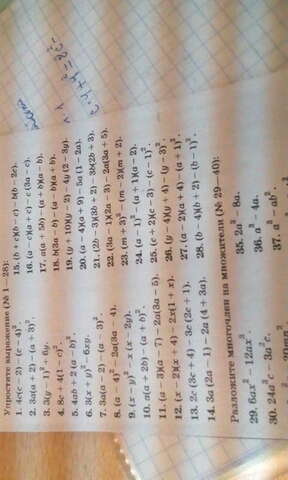 Упростите выражение (№ 1—28):
1. 4c(c − 2) − (c − 4)².
2. 3a(a + 2) − (a + 3)².
3. 3(y − 1)² + 6y.
4. 8c + 4(1 − c)².
5. 4ab + 2(a − b)².
6. 3(x + y)² − 6xy.
7. 3a(a − 2) − (a − 3)².
8. (a − 4)² − 2a(3a − 4).
9. (x − y)² − x(x − 2y).
10. a(a + 2b) − (a + b)².
11. (a − 3)(a − 7) − 2a(3a − 5).
12. (x − 2)(x + 4) − 2x(1 + x).
13. 2c(3c + 4) − 3c(2c + 1).
14. 3a(2a − 1) − 2a(4 + 3a).
15. (b + c)(b − c) − b(b − 2c).
16. (a − c)(a + c) − c(3a − c).
17. a(a + 5b) − (a + b)(a − b).
18. b(3a − b) − (a − b)(a + b).
19. (y + 10)(y − 2) − 4y(2 − 3y).
20. (a − 4)(a + 9) − 5a(1 − 2a).
21. (2b − 3)(3b + 2) − 3b(2b + 3).
22. (3a − 1)(2a − 3) − 2a(3a + 5).
23. (m + 3)² − (m − 2)(m + 2).
24. (a − 1)² − (a + 1)(a − 2).
25. (c + 2)(c − 3) − (c − 1)².
26. (y − 4)(y + 4) − (y − 3)².
27. (a − 2)(a + 4) − (a + 1)².
28. (b − 4)(b + 2) − (b − 1)².
Разложите многочлен на множители (№ 29—40):
29. 6ax² − 12ax³
30. 24a²c − 3a²c.
35. 2a³ − 8a.
36. a³ − 4a.
37. a³ − ab².